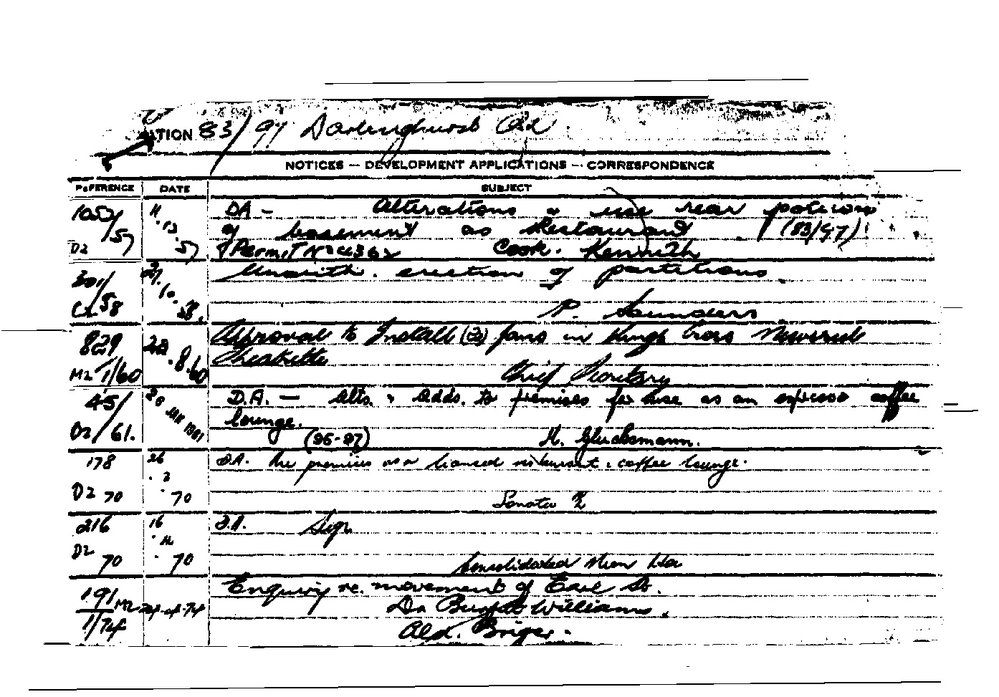 ATION 83/97 Darlinghurst Rd
NOTICES — DEVELOPMENT APPLICATIONS — CORRESPONDENCE
REFERENCE DATE SUBJECT
1052/57 D2 11.12.57 DA - Alterations & use rear portion
of basement as Restaurant (83/97)
Permit No 4362 Cook. Kenneth
301/58 27.10.58. erection of partitions
P. Saunders
829 M2 1/60 22.8.60 Approval to Install (2) fans in Kings Cross Newsreel
Theatrette
Chief Secretary
45/ D2/61. 20 JAN 1961 D.A. — Alts. & Adds. to premises for use as an espresso coffee
lounge.
(95-97) H. Glucksmann.
178 D2 70 26.2.70 D.A. Use premises as a licensed restaurant & coffee lounge.
216 D2 70 16 70 D.A. Sign
Consolidated Neon
191 M2 1/74 24-4-74 Enquiry re. movement of Earl St.
Dr Williams.
Ald. Briger.